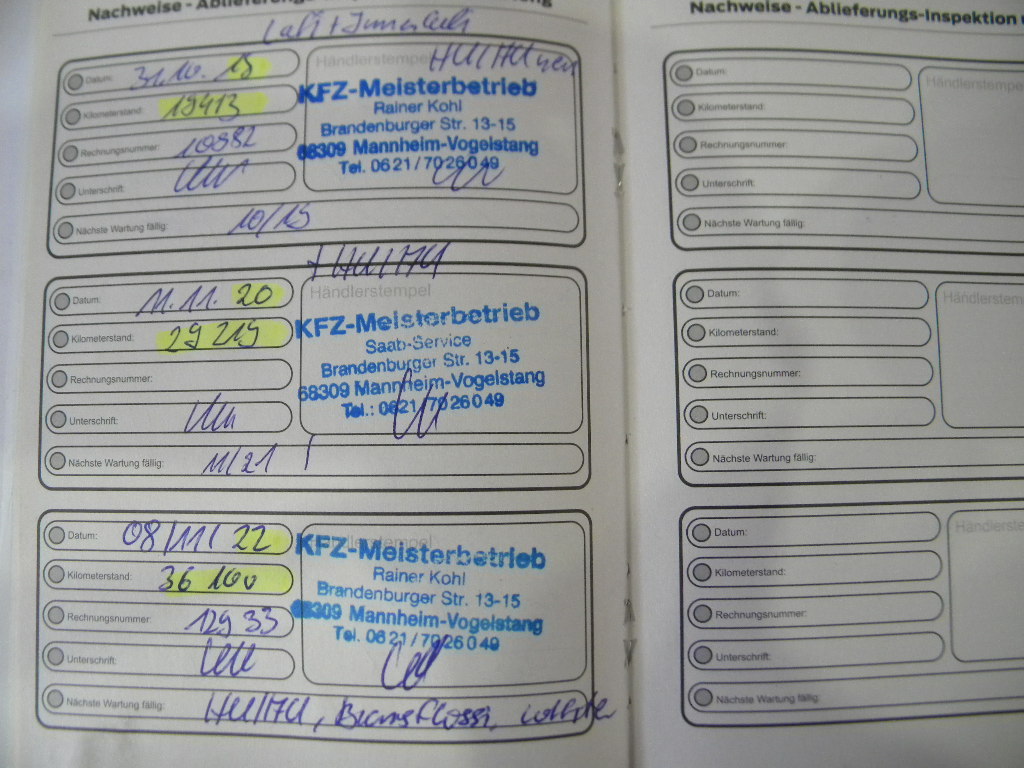 Nachweise - Ablieferungs-
Händlerstempel HU/HU
Datum: 31.10.19
Kilometerstand: 19413
Rechnungsnummer: 10982
Unterschrift:
Nächste Wartung fällig: 10/19
KFZ-Meisterbetrieb
Rainer Kohl
Brandenburger Str. 13-15
68309 Mannheim-Vogelstang
Tel. 0621/7026049
+ HU/HU
Datum: 11.11.20
Kilometerstand: 29219
Rechnungsnummer:
Unterschrift:
Nächste Wartung fällig: 11/21
Händlerstempel
KFZ-Meisterbetrieb
Saab-Service
Brandenburger Str. 13-15
68309 Mannheim-Vogelstang
Tel.: 0621/7026049
Datum: 08/11/22
Kilometerstand: 36100
Rechnungsnummer: 12933
Unterschrift:
Nächste Wartung fällig: HU/HU,
KFZ-Meisterbetrieb
Rainer Kohl
Brandenburger Str. 13-15
68309 Mannheim-Vogelstang
Tel. 0621/7026049
Nachweise - Ablieferungs-Inspektion
Datum:
Kilometerstand:
Rechnungsnummer:
Unterschrift:
Nächste Wartung fällig:
Händlerstempel
Datum:
Kilometerstand:
Rechnungsnummer:
Unterschrift:
Nächste Wartung fällig:
Händlerstem
Datum:
Kilometerstand:
Rechnungsnummer:
Unterschrift:
Nächste Wartung fällig:
Händlerste